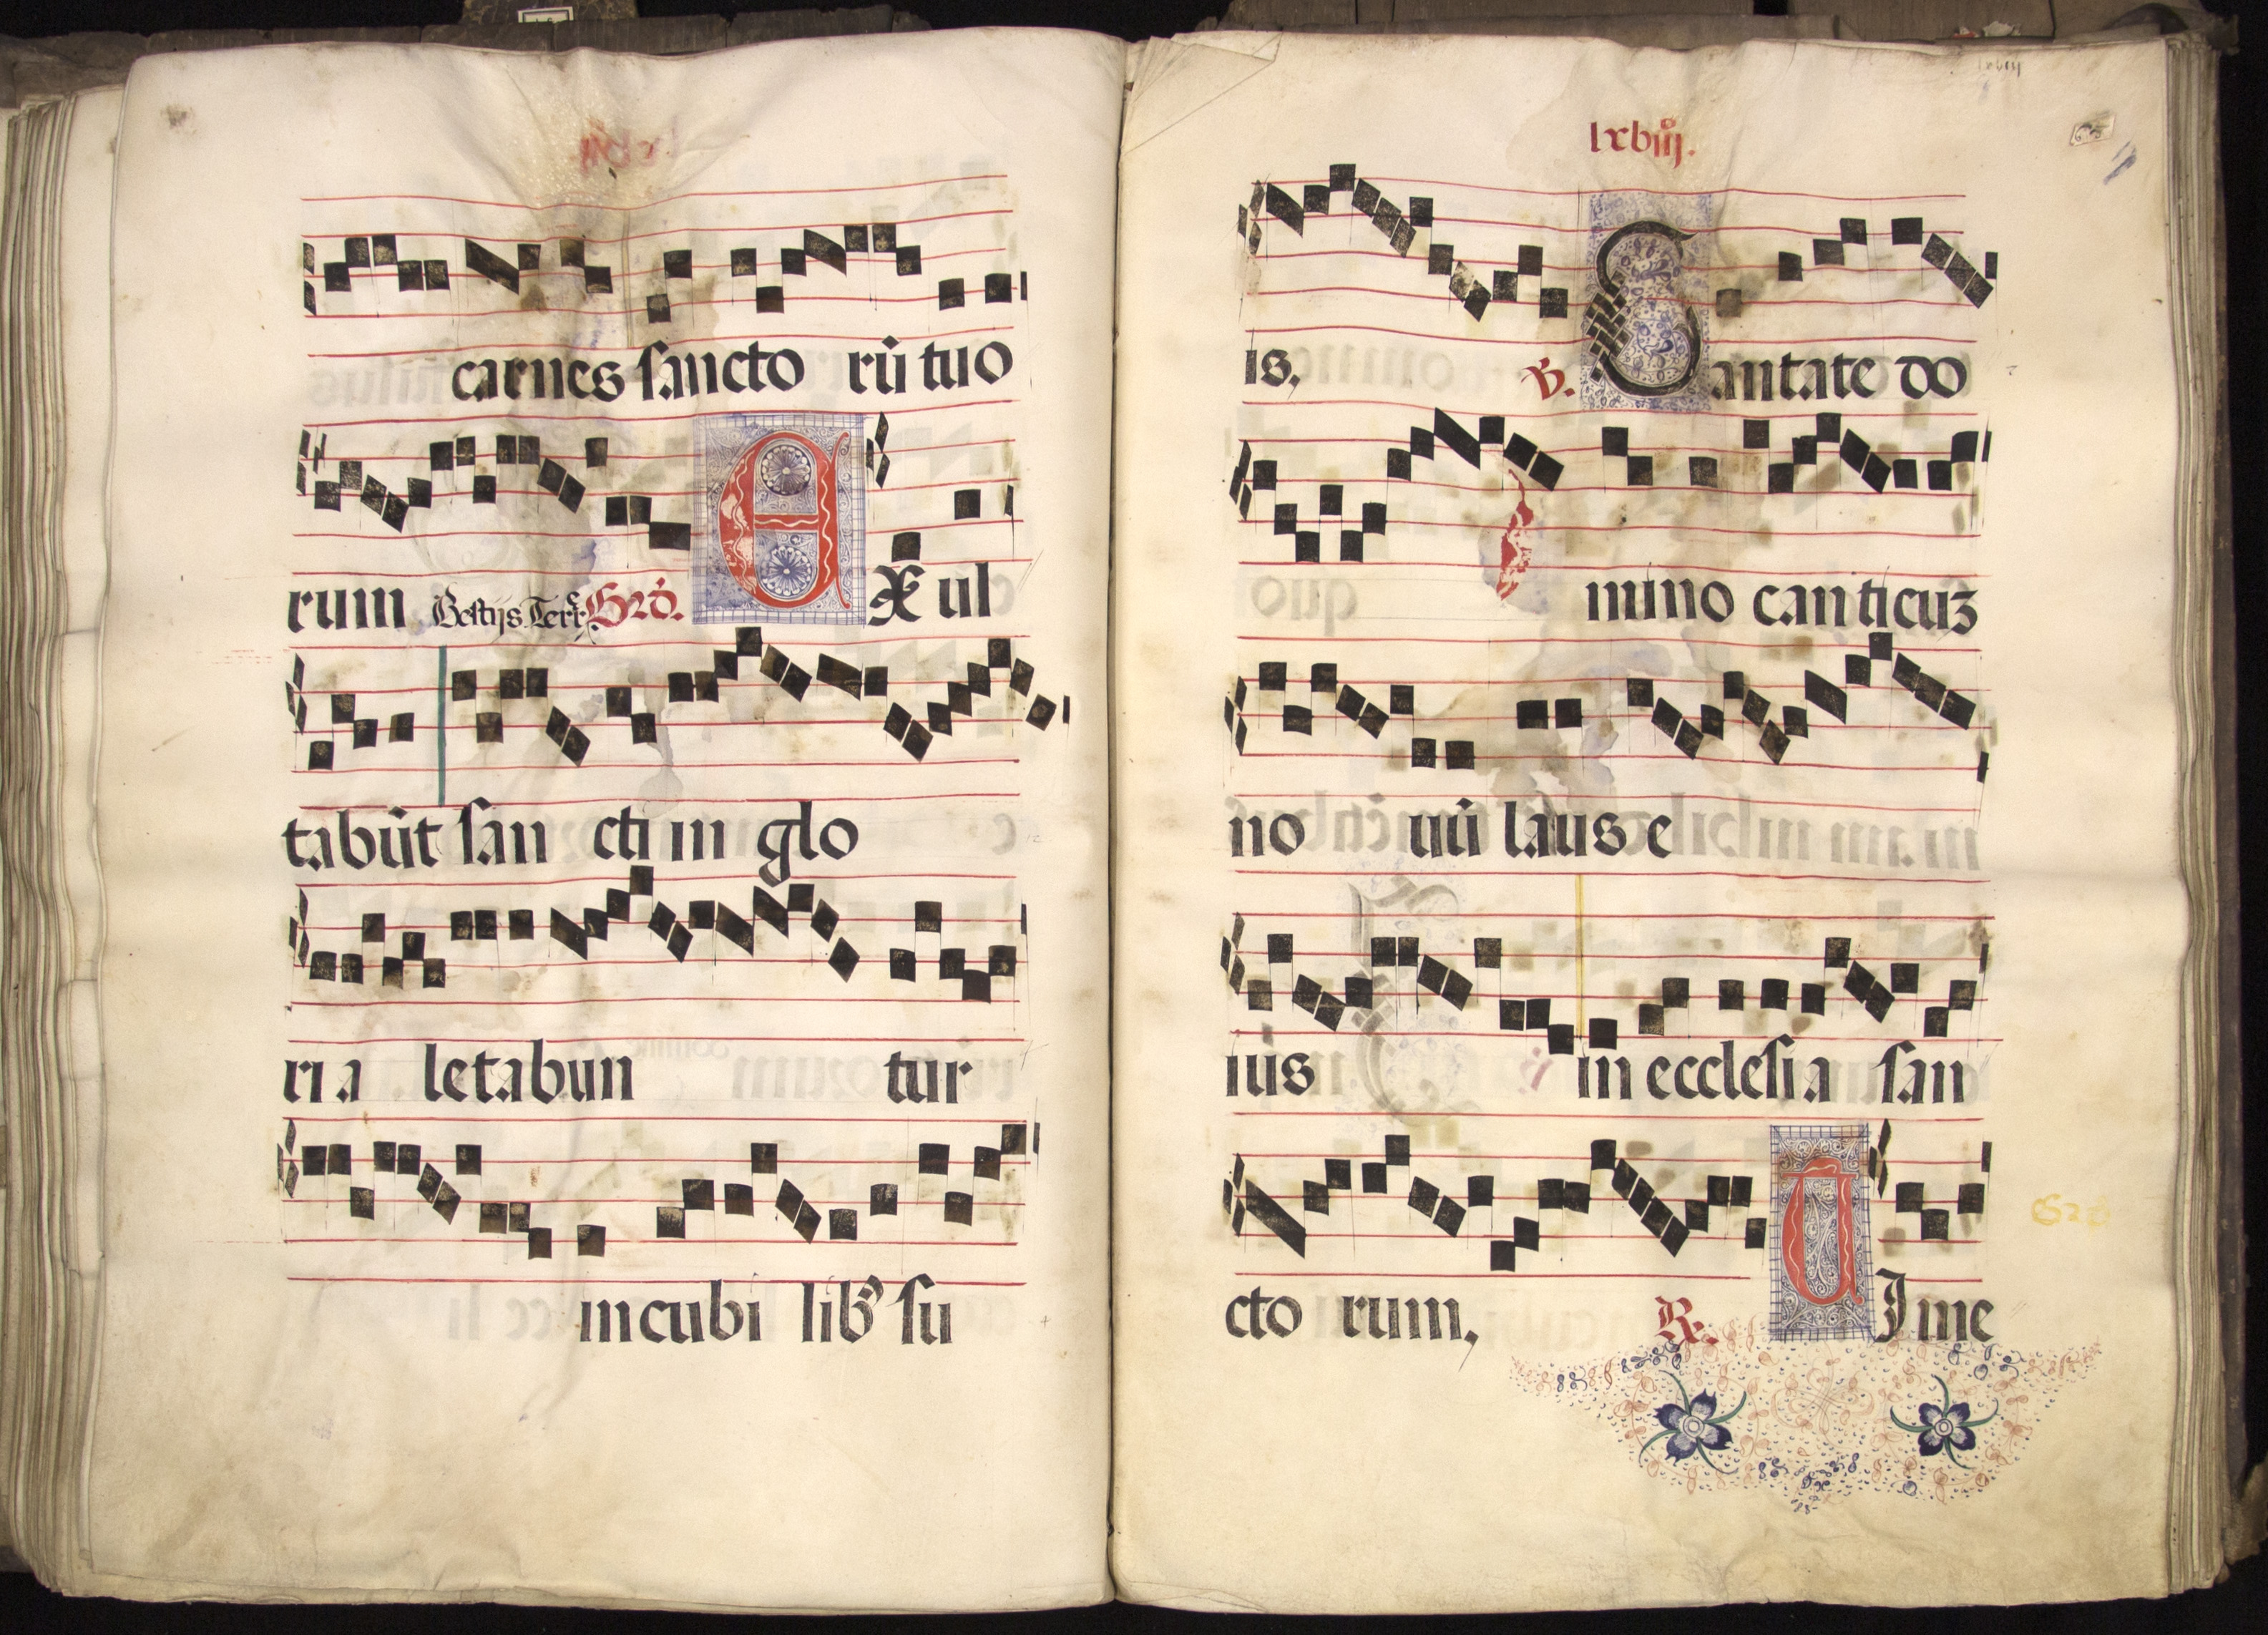 carnes sancto rū tuo
rum Bestijs Terr&. Grd. EX ul
tabūt san cti in glo
ri a letabun tur
in cubi lib⁹ su
lxbiij.
is. V. Cantate do
mino canticuʒ
no uū laus e
ius in ecclesi a san
cto rum, R. UI me